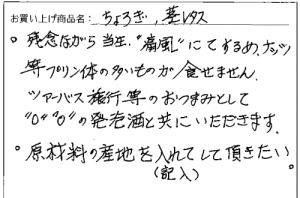 お買い上げ商品名：ちょろぎ，茎レタス
○ 残念ながら当生．"痛風"にてするめ，ナッツ
等プリン体の多いものが食せません．
ツアーバス旅行等のおつまみとして
"0""0"の発泡酒と共にいただきます．
○ 原材料の産地を入れてして頂きたい
（記入） 。